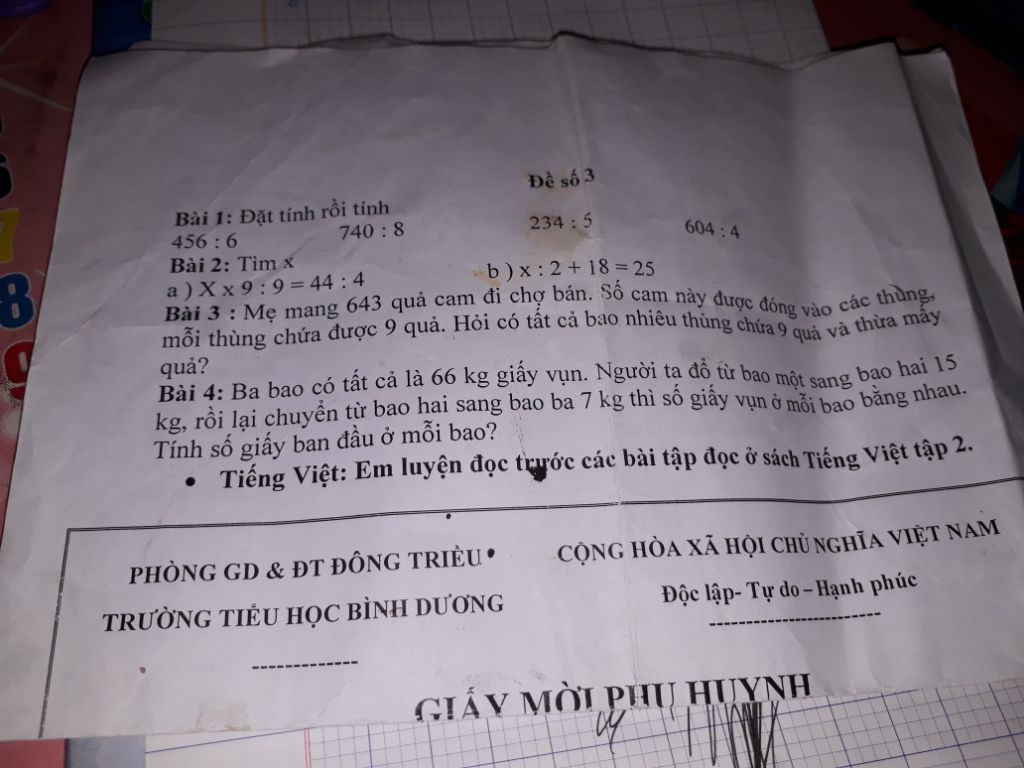 Đề số 3
Bài 1: Đặt tính rồi tính
456 : 6 740 : 8 234 : 5 604 : 4
Bài 2: Tìm x
a ) X x 9 : 9 = 44 : 4 b ) x : 2 + 18 = 25
Bài 3 : Mẹ mang 643 quả cam đi chợ bán. Số cam này được đóng vào các thùng,
mỗi thùng chứa được 9 quả. Hỏi có tất cả bao nhiêu thùng chứa 9 quả và thừa mấy
quả?
Bài 4: Ba bao có tất cả là 66 kg giấy vụn. Người ta đổ từ bao một sang bao hai 15
kg, rồi lại chuyển từ bao hai sang bao ba 7 kg thì số giấy vụn ở mỗi bao bằng nhau.
Tính số giấy ban đầu ở mỗi bao?
• Tiếng Việt: Em luyện đọc trước các bài tập đọc ở sách Tiếng Việt tập 2.
PHÒNG GD & ĐT ĐÔNG TRIỀU
TRƯỜNG TIỂU HỌC BÌNH DƯƠNG
CỘNG HÒA XÃ HỘI CHỦ NGHĨA VIỆT NAM
Độc lập- Tự do – Hạnh phúc
GIẤY MỜI PHỤ HUYNH